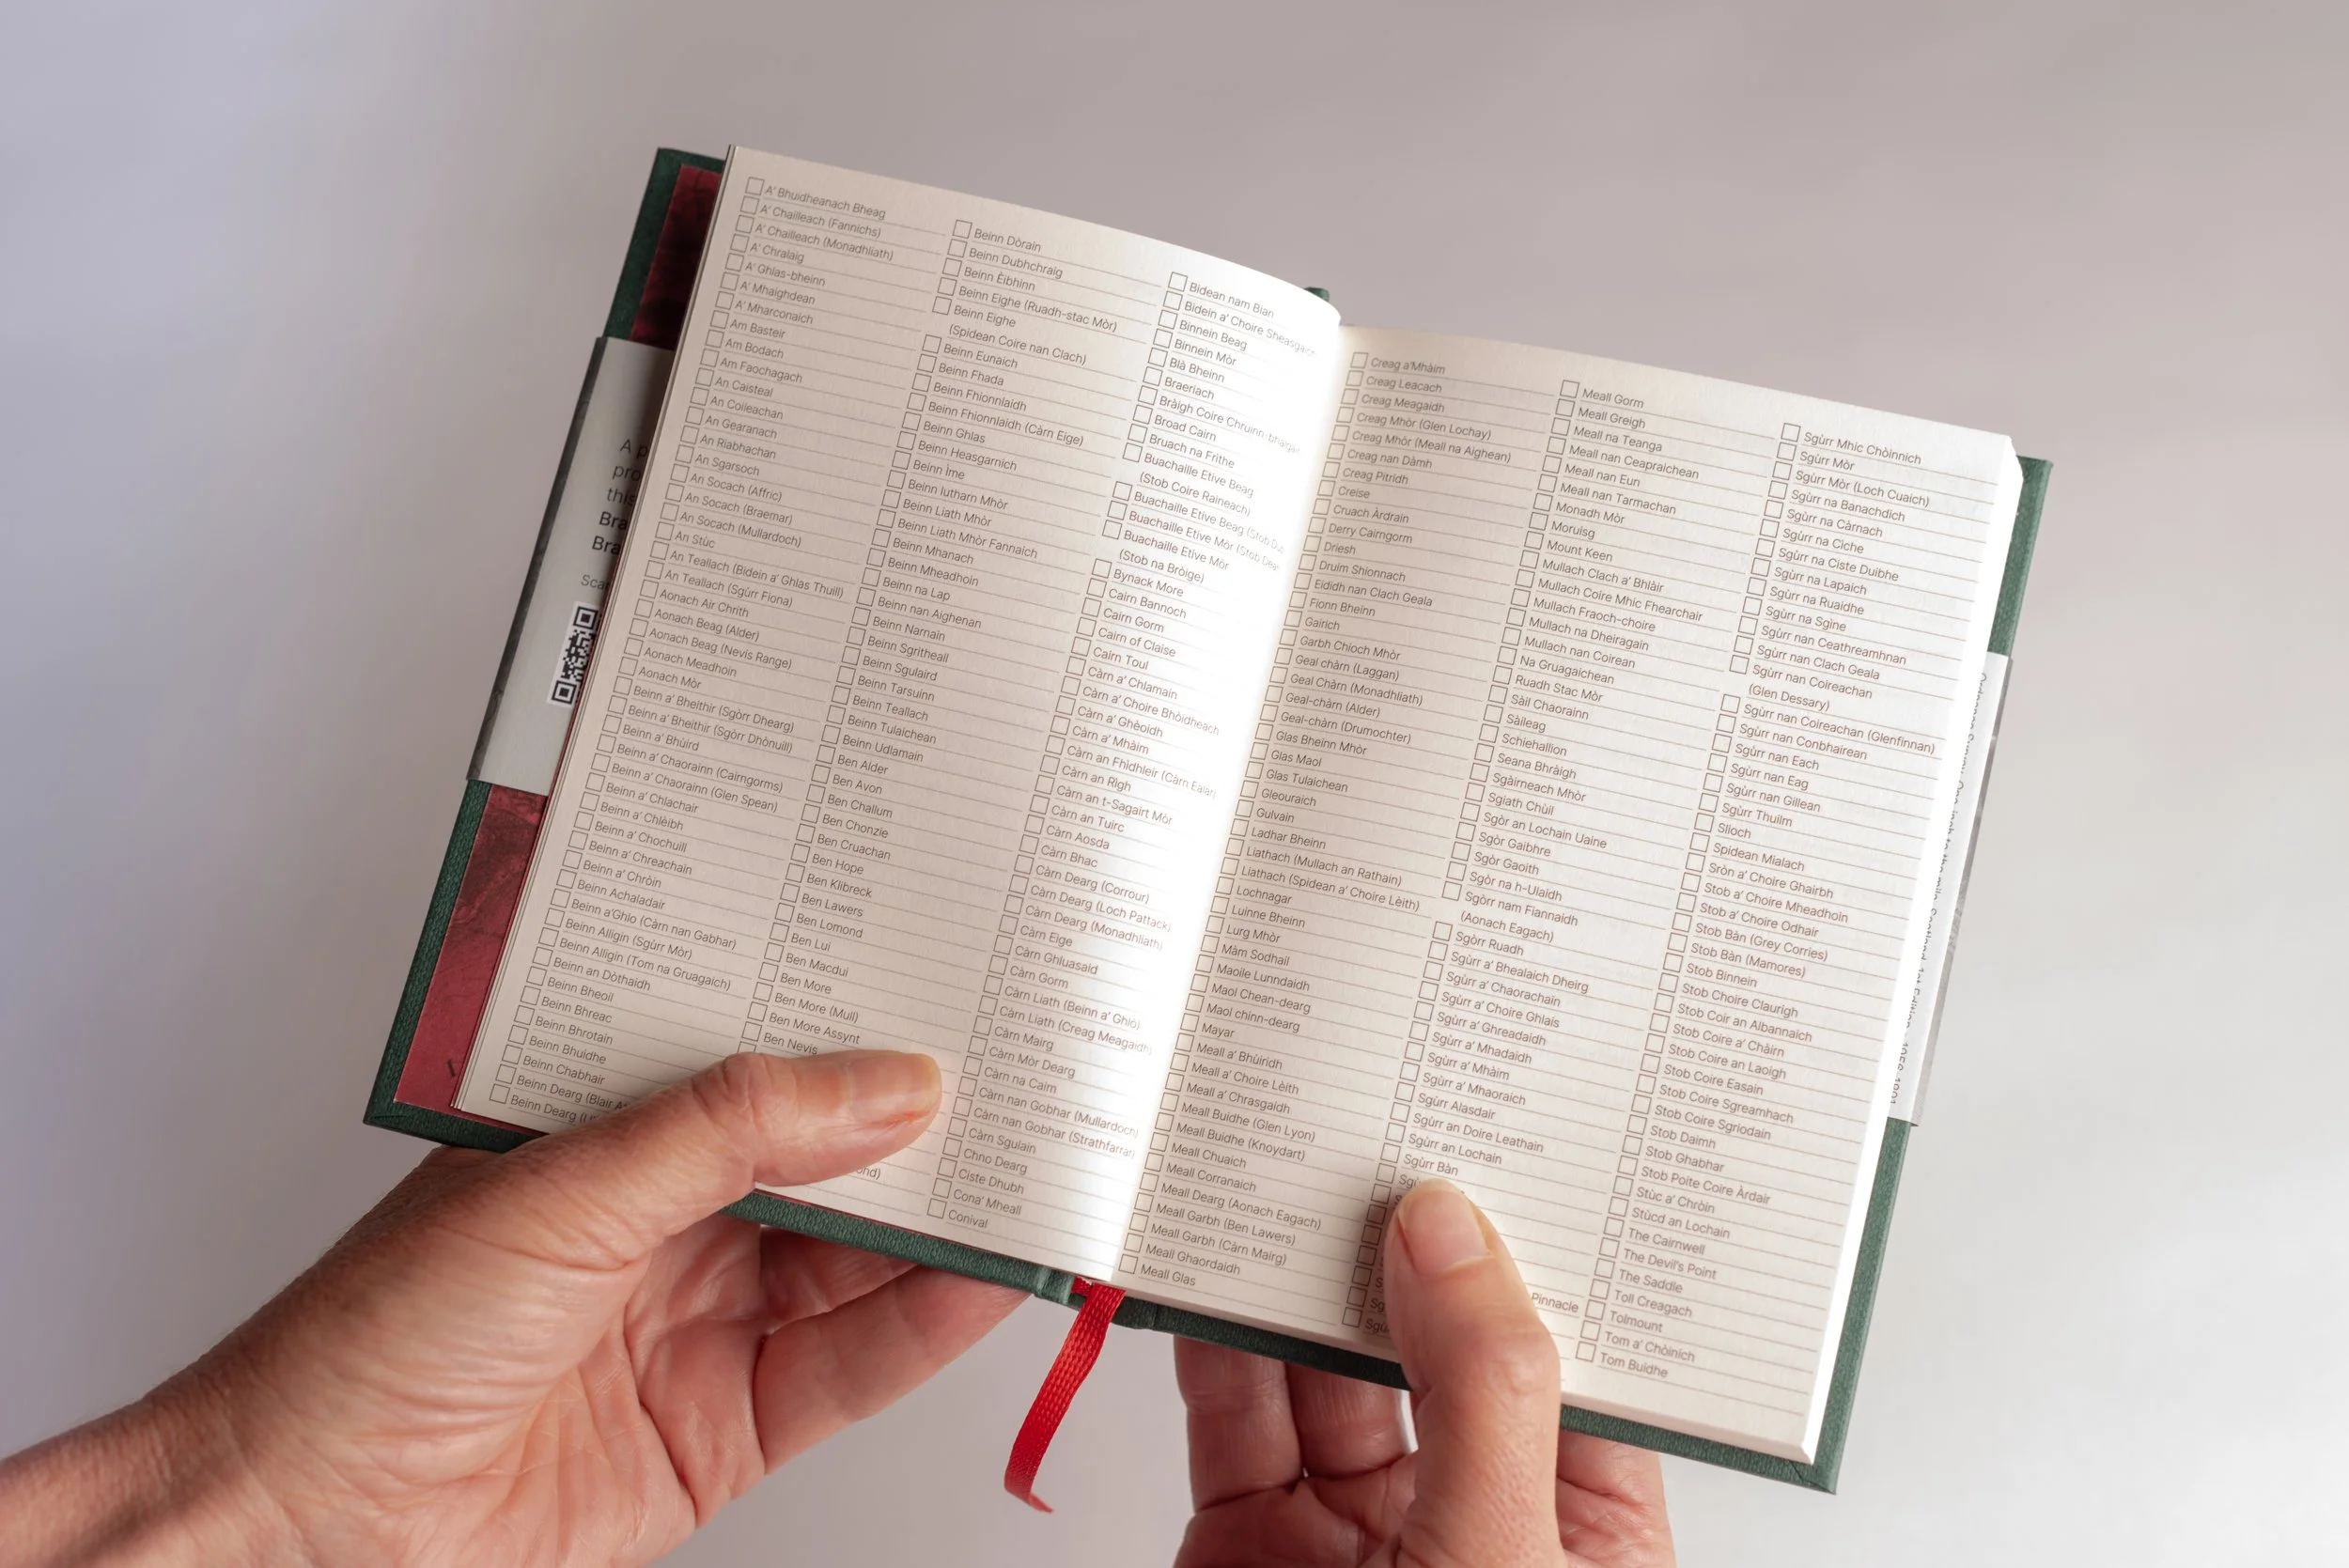 A' Bhuidheanach Bheag
A' Chailleach (Fannichs)
A' Chailleach (Monadhliath)
A' Chralaig
A' Ghlas-bheinn
A' Mhaighdean
A' Mharconaich
Am Basteir
Am Bodach
Am Faochagach
An Caisteal
An Coileachan
An Gearanach
An Riabhachan
An Sgarsoch
An Socach (Affric)
An Socach (Braemar)
An Socach (Mullardoch)
An Stùc
An Teallach (Bidein a' Ghlas Thuill)
An Teallach (Sgùrr Fiona)
Aonach Air Chrith
Aonach Beag (Alder)
Aonach Beag (Nevis Range)
Aonach Meadhoin
Aonach Mòr
Beinn a' Bheithir (Sgòrr Dhearg)
Beinn a' Bheithir (Sgòrr Dhònuill)
Beinn a' Bhùird
Beinn a' Chaorainn (Cairngorms)
Beinn a' Chaorainn (Glen Spean)
Beinn a' Chlachair
Beinn a' Chlèibh
Beinn a' Chochuill
Beinn a' Chreachain
Beinn a' Chròin
Beinn Achaladair
Beinn a'Ghlo (Càrn nan Gabhar)
Beinn Alligin (Sgùrr Mòr)
Beinn Alligin (Tom na Gruagaich)
Beinn an Dòthaidh
Beinn Bheoil
Beinn Bhreac
Beinn Bhrotain
Beinn Bhuidhe
Beinn Chabhair
Beinn Dearg (Blair
Beinn Dearg
Beinn Dòrain
Beinn Dubhchraig
Beinn Èibhinn
Beinn Eighe (Ruadh-stac Mòr)
Beinn Eighe
(Spidean Coire nan Clach)
Beinn Eunaich
Beinn Fhada
Beinn Fhionnlaidh
Beinn Fhionnlaidh (Càrn Eige)
Beinn Ghlas
Beinn Heasgarnich
Beinn Ìme
Beinn Iutharn Mhòr
Beinn Liath Mhòr
Beinn Liath Mhòr Fannaich
Beinn Mhanach
Beinn Mheadhoin
Beinn na Lap
Beinn nan Aighenan
Beinn Narnain
Beinn Sgritheall
Beinn Sgulaird
Beinn Tarsuinn
Beinn Teallach
Beinn Tulaichean
Beinn Udlamain
Ben Alder
Ben Avon
Ben Challum
Ben Chonzie
Ben Cruachan
Ben Hope
Ben Klibreck
Ben Lawers
Ben Lomond
Ben Lui
Ben Macdui
Ben More
Ben More (Mull)
Ben More Assynt
Ben Nevis
ond)
Bidean nam Bian
Bidein a' Choire Sheasgaich
Binnein Beag
Binnein Mòr
Blà Bheinn
Braeriach
Bràigh Coire Chruinn-bhalgain
Broad Cairn
Bruach na Frìthe
Buachaille Etive Beag
(Stob Coire Raineach)
Buachaille Etive Beag (Stob Du
Buachaille Etive Mòr (Stob Dear
Buachaille Etive Mòr
(Stob na Bròige)
Bynack More
Cairn Bannoch
Cairn Gorm
Cairn of Claise
Cairn Toul
Càrn a' Chlamain
Càrn a' Choire Bhòidheach
Càrn a' Gheòidh
Càrn a' Mhàim
Càrn an Fhìdhleir (Càrn Ealar)
Càrn an Rìgh
Càrn an t-Sagairt Mòr
Càrn an Tuirc
Càrn Aosda
Càrn Bhac
Càrn Dearg (Corrour)
Càrn Dearg (Loch Pattack)
Càrn Dearg (Monadhliath)
Càrn Eige
Càrn Ghluasaid
Càrn Gorm
Càrn Liath (Beinn a' Ghlo)
Càrn Liath (Creag Meagaidh)
Càrn Mairg
Càrn Mòr Dearg
Càrn na Caim
Càrn nan Gobhar (Mullardoch)
Càrn nan Gobhar (Strathfarrar)
Càrn Sgulain
Chno Dearg
Ciste Dhubh
Cona' Mheall
Conival
Creag a'Mhàim
Creag Leacach
Creag Meagaidh
Creag Mhòr (Glen Lochay)
Creag Mhòr (Meall na Aighean)
Creag nan Dàmh
Creag Pitridh
Creise
Cruach Àrdrain
Derry Cairngorm
Driesh
Druim Shionnach
Eididh nan Clach Geala
Fionn Bheinn
Gairich
Garbh Chioch Mhòr
Geal chàrn (Laggan)
Geal Chàrn (Monadhliath)
Geal-chàrn (Alder)
Geal-chàrn (Drumochter)
Glas Bheinn Mhòr
Glas Maol
Glas Tulaichean
Gleouraich
Gulvain
Ladhar Bheinn
Liathach (Mullach an Rathain)
Liathach (Spidean a' Choire Lèith)
Lochnagar
Luinne Bheinn
Lurg Mhòr
Màm Sodhail
Maoile Lunndaidh
Maol Chean-dearg
Maol chinn-dearg
Mayar
Meall a' Bhùiridh
Meall a' Choire Lèith
Meall a' Chrasgaidh
Meall Buidhe (Glen Lyon)
Meall Buidhe (Knoydart)
Meall Chuaich
Meall Corranaich
Meall Dearg (Aonach Eagach)
Meall Garbh (Ben Lawers)
Meall Garbh (Càrn Mairg)
Meall Ghaordaidh
Meall Glas
Meall Gorm
Meall Greigh
Meall na Teanga
Meall nan Ceapraichean
Meall nan Eun
Meall nan Tarmachan
Monadh Mòr
Moruisg
Mount Keen
Mullach Clach a' Bhlàir
Mullach Coire Mhic Fhearchair
Mullach Fraoch-choire
Mullach na Dheiragain
Mullach nan Coirean
Na Gruagaichean
Ruadh Stac Mòr
Sàil Chaorainn
Sàileag
Schiehallion
Seana Bhràigh
Sgàirneach Mhòr
Sgiath Chùil
Sgòr an Lochain Uaine
Sgòr Gaibhre
Sgòr Gaoith
Sgòr na h-Ulaidh
Sgòrr nam Fiannaidh
(Aonach Eagach)
Sgòrr Ruadh
Sgùrr a' Bhealaich Dheirg
Sgùrr a' Chaorachain
Sgùrr a' Choire Ghlais
Sgùrr a' Ghreadaidh
Sgùrr a' Mhadaidh
Sgùrr a' Mhàim
Sgùrr a' Mhaoraich
Sgùrr Alasdair
Sgùrr an Doire Leathain
Sgùrr an Lochain
Sgùrr Bàn
Pinnacle
Sgùrr Mhic Chòinnich
Sgùrr Mòr
Sgùrr Mòr (Loch Cuaich)
Sgùrr na Banachdich
Sgùrr na Càrnach
Sgùrr na Ciche
Sgùrr na Ciste Duibhe
Sgùrr na Lapaich
Sgùrr na Ruaidhe
Sgùrr na Sgine
Sgùrr nan Ceathreamhnan
Sgùrr nan Clach Geala
Sgùrr nan Coireachan
(Glen Dessary)
Sgùrr nan Coireachan (Glenfinnan)
Sgùrr nan Conbhairean
Sgùrr nan Each
Sgùrr nan Eag
Sgùrr nan Gillean
Sgùrr Thuilm
Slioch
Spidean Mialach
Sròn a' Choire Ghairbh
Stob a' Choire Mheadhoin
Stob a' Choire Odhair
Stob Bàn (Grey Corries)
Stob Bàn (Mamores)
Stob Binnein
Stob Choire Claurigh
Stob Coir an Albannaich
Stob Coire a' Chàirn
Stob Coire an Laoigh
Stob Coire Easain
Stob Coire Sgreamhach
Stob Coire Sgriodain
Stob Daimh
Stob Ghabhar
Stob Poite Coire Àrdair
Stùc a' Chròin
Stùcd an Lochain
The Cairnwell
The Devil's Point
The Saddle
Toll Creagach
Tolmount
Tom a' Chòinich
Tom Buidhe